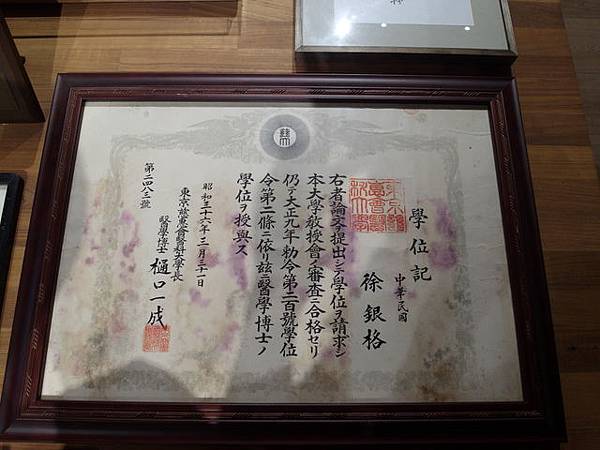 學位記
中華民國
徐銀格
右者論文ヲ提出シテ學位ヲ請求シ
本大學敎授會ノ審査ニ合格セリ
仍テ大正九年勅令第二百號學位
令第二條ニ依リ玆ニ醫學博士ノ
學位ヲ授與ス
昭和三十六年三月三十一日
東京慈惠會醫科大學長
醫學博士 樋口一成
第二四八三號